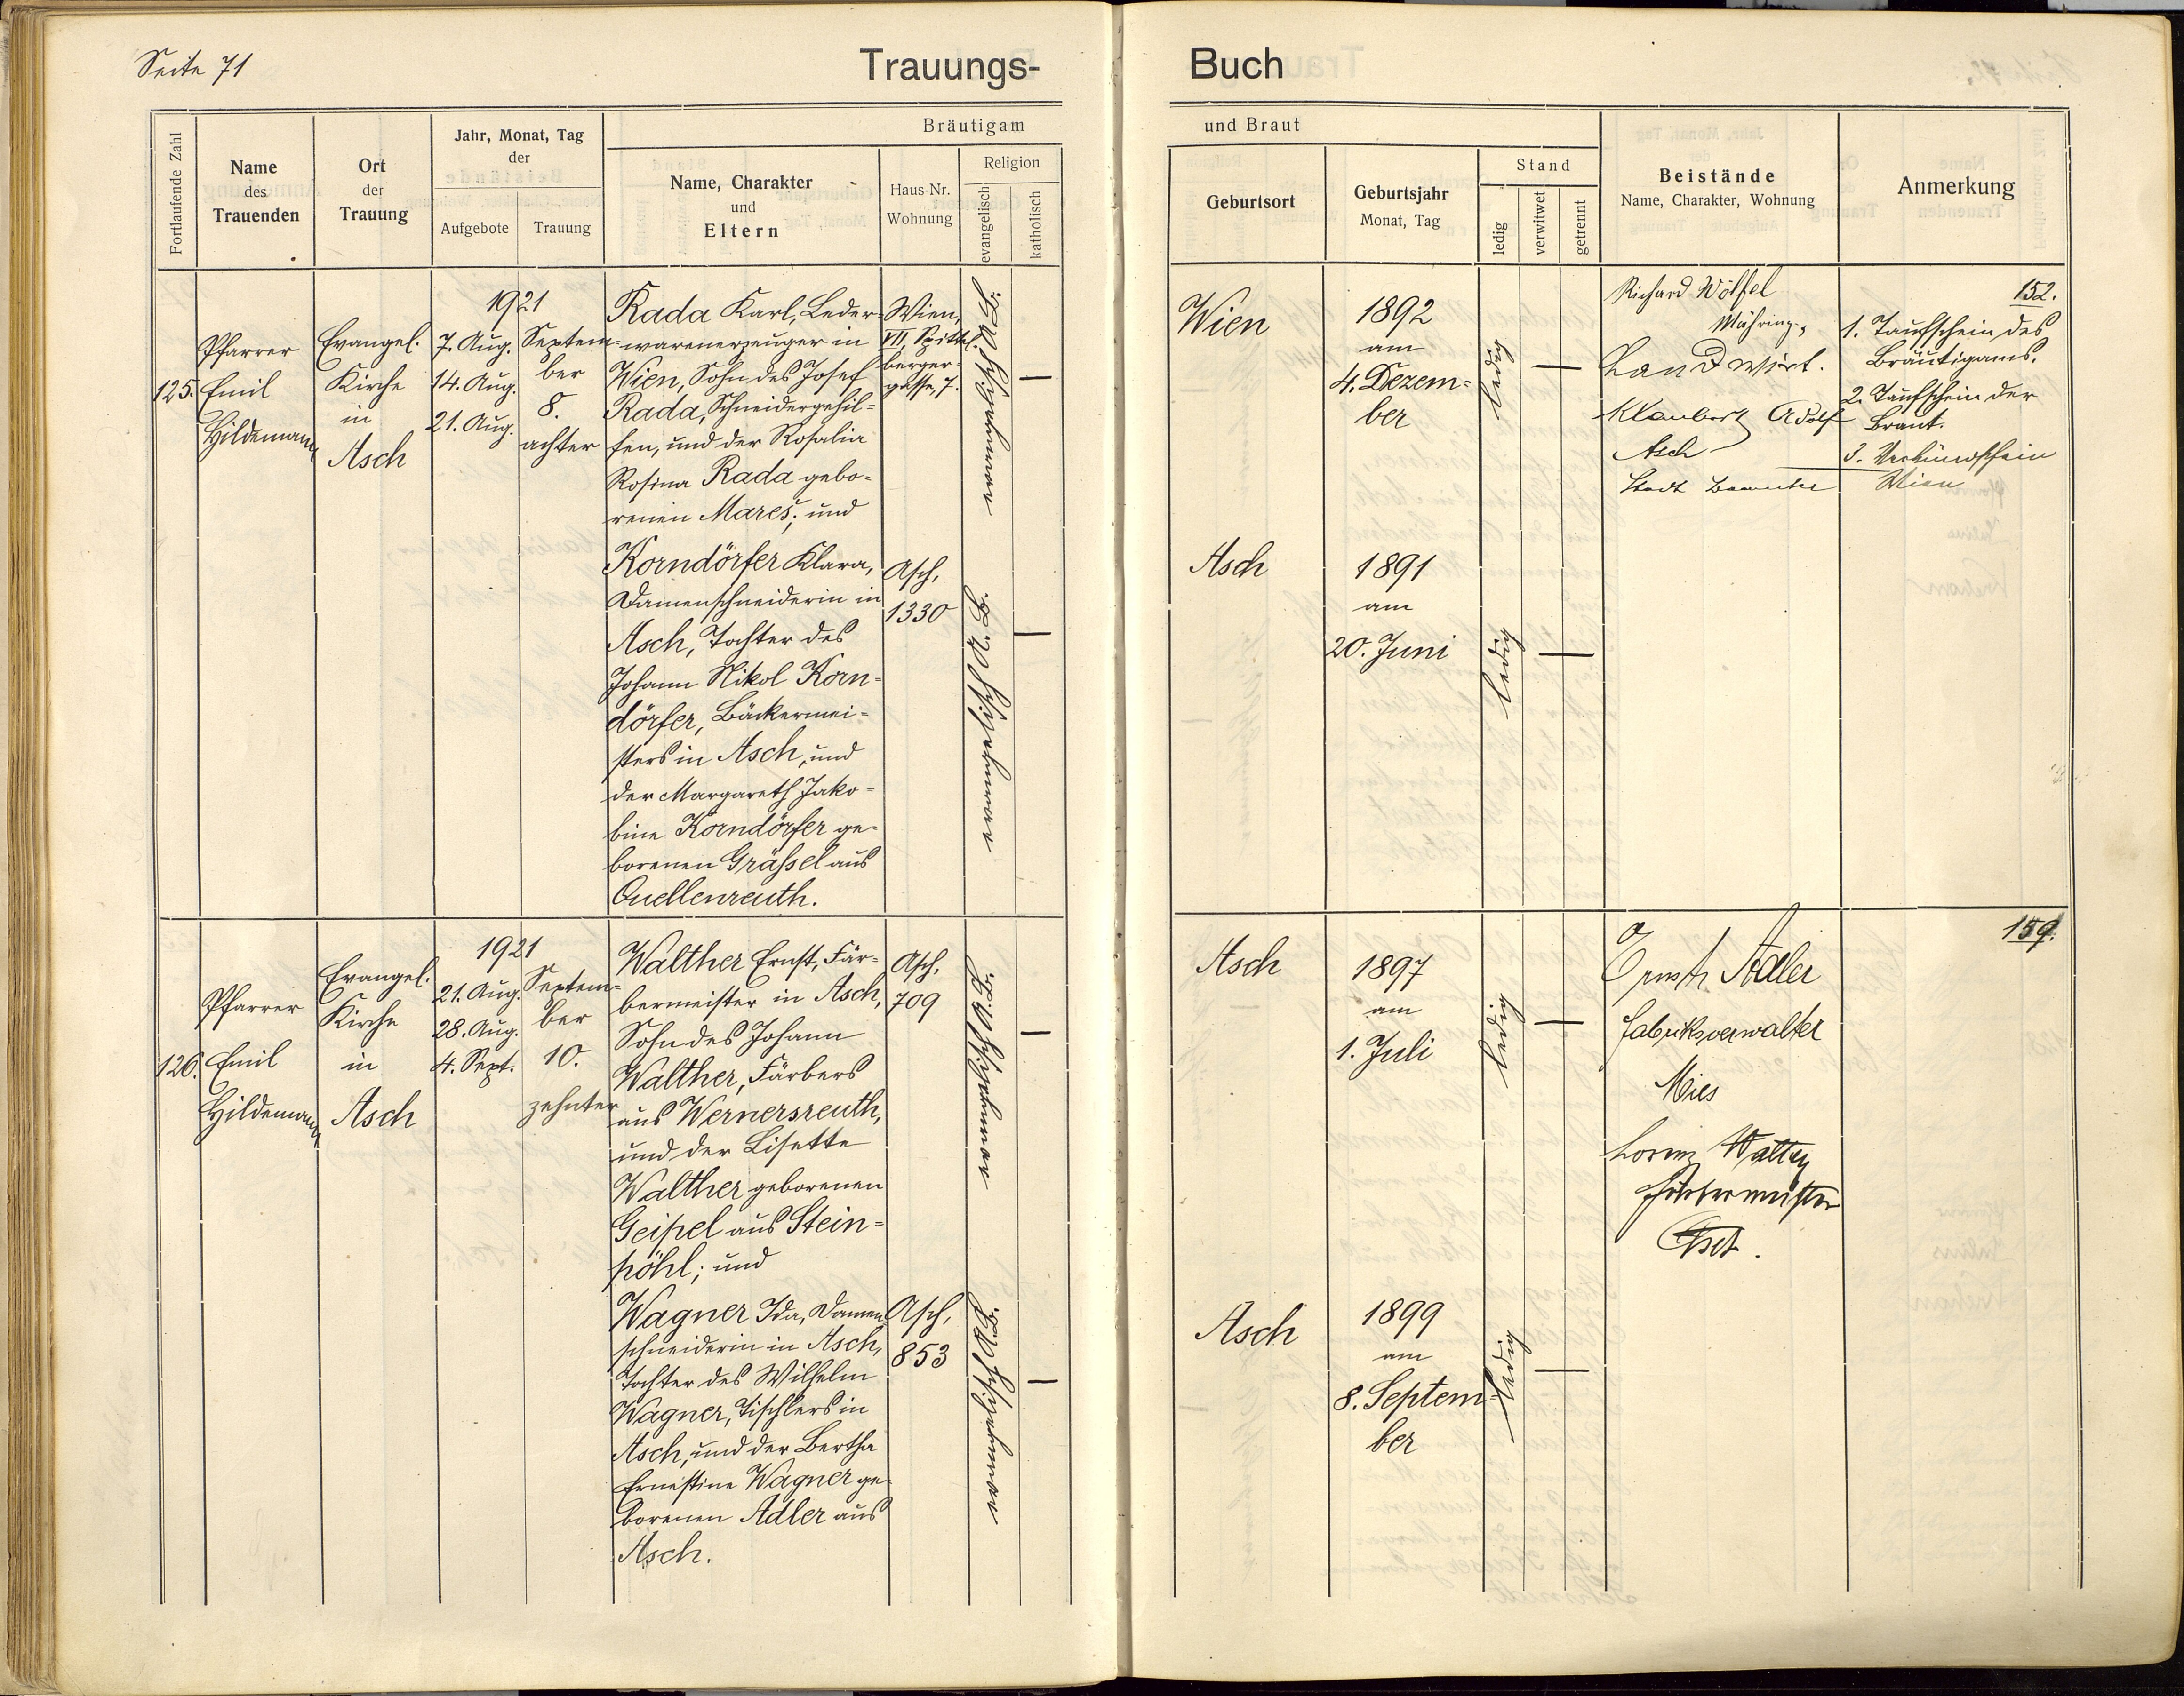 Seite 71
Trauungs-
Fortlaufende Zahl
Name
des
Trauenden
Ort
der
Trauung
Jahr, Monat, Tag
der
Aufgebote
Trauung
Bräutigam
Name, Charakter
und
Eltern
Haus-Nr.
Wohnung
Religion
evangelisch
katholisch
125.
Pfarrer
Emil
Hildemann
Evangel.
Kirche
in
Asch
1921
7. Aug.
14. Aug.
21. Aug.
Septem-
ber
8.
achter
Rada Karl, Leder-
warenerzeuger in
Wien, Sohn des Josef
Rada, Schneidergehil-
fen, und der Rosalia
Rosina Rada gebo-
renen Mareš; und
Wien,
VII, Spittel-
berger-
gasse, 7.
evangelisch A. B.
—
Korndörfer Klara,
Damenschneiderin in
Asch, Tochter des
Johann Nikol Korn-
dörfer, Bäckermei-
sters in Asch, und
der Margareth Jako-
bine Korndörfer ge-
borenen Gräßel aus
Quellenreuth.
Asch,
1330
evangelisch A. B.
—
126.
Pfarrer
Emil
Hildemann
Evangel.
Kirche
in
Asch
1921
21. Aug.
28. Aug.
4. Sept.
Septem-
ber
10.
zehnter
Walther Ernst, Fär-
bermeister in Asch,
Sohn des Johann
Walther, Färbers
aus Wernersreuth,
und der Lisette
Walther geborenen
Geipel aus Stein-
pöhl; und
Asch,
709
evangelisch A. B.
—
Wagner Ida, Damen-
schneiderin in Asch,
Tochter des Wilhelm
Wagner, Tischlers in
Asch, und der Bertha
Ernestine Wagner ge-
borenen Adler aus
Asch.
Asch,
853
evangelisch A. B.
—
Buch
und Braut
Geburtsort
Geburtsjahr
Monat, Tag
Stand
ledig
verwitwet
getrennt
Beistände
Name, Charakter, Wohnung
Anmerkung
Wien
1892
am
4. Dezem-
ber
ledig
—
Richard Wölfel
Mähring,
Landwirt.
Klaubert Adolf
Asch
Stadt Beamter
152.
1. Taufschein des
Bräutigams.
2. Taufschein der
Braut.
3. Verkündschein
Wien
Asch
1891
am
20. Juni
ledig
—
Asch
1897
am
1. Juli
ledig
—
Ernst Adler
Fabriksverwalter
Mies
Färbermeister
Asch.
159.
Asch
1899
am
8. Septem-
ber
ledig
—